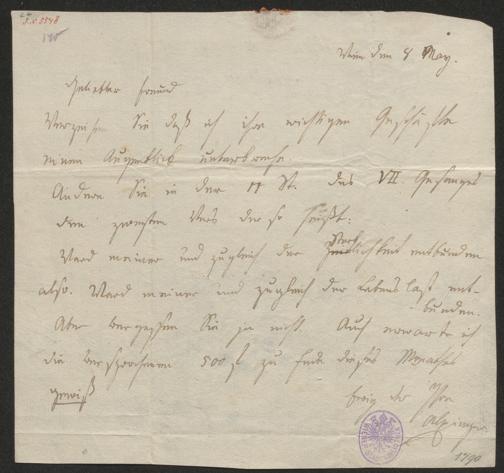 I.N. 5548
Wien den 8 May.
Geliebter Freund
Verzeihen Sie daß ich ihre wichtigen Geschäfte
einen Augenblick unterbreche
Andern Sie in der 11 St. des VII. Gesanges
den zweyten Vers der so heißt:
Ward meiner und zugleich der Sterblichkeit entbunden
also. Ward meiner und zugleich der Lebens last ent-
bunden.
Aber vergessen Sie ja nicht. Auch erwarte ich
die versprochenen 500 f zu Ende dieses Monathes
gewiß
Ewig der Ihre
Alxinger
1790